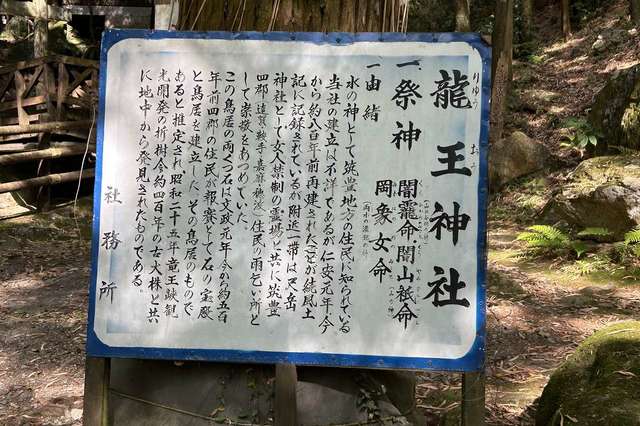 龍王神社
りゅう おう
一祭神 闇龗命、闇山祇命
岡象女命
(雨水の灌漑の神)
一由緒
水の神として筑豊地方の住民に知られている
当社の建立は不詳であるが仁安元年、今
から約八百年前再建されたことが続風土
記に記録されているが附近一帯は尺岳
神社として女人禁制の霊場と共に筑豊
四郡(遠賀、鞍手、嘉麻、穂波)住民の雨乞い所と
して崇敬をあつめていた。
この鳥居の両くつ石は文政元年今から約五百
年前四郡の住民が報賽として石の宝殿
と鳥居を建立した。その鳥居のもので
あると推定され昭和二十五年竜王峡観
光開発の折樹令約四百年の古大株と共
に地中から発見されたものである。
社務所